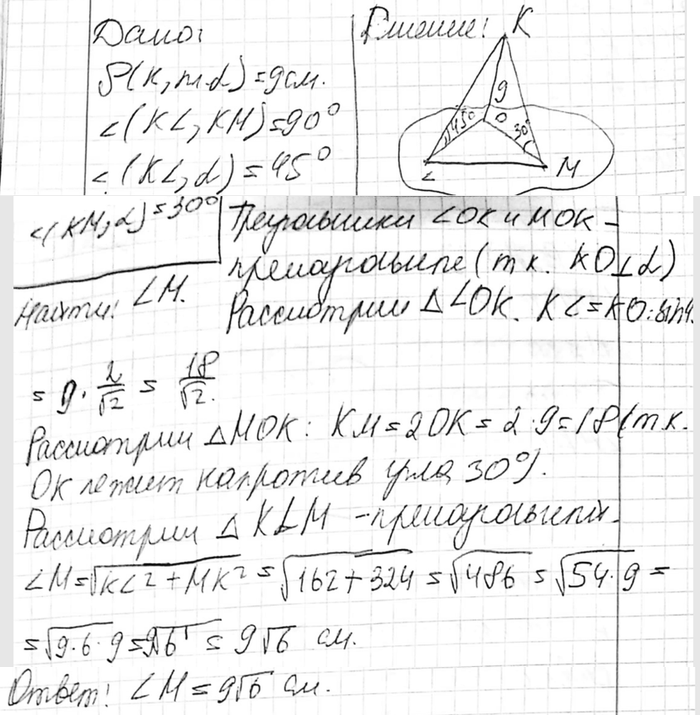 Дано:
Решение!
ρ(K, m.α) = 9 см.
∠(KL, KM) = 90°
∠(KL, α) = 45°
K
9
O
45°
30°
L
M
∠(KM, α) = 30°
Найти: LM.
Треугольники LOK и MOK –
прямоугольные (т.к. KO⊥α)
Рассмотрим △LOK. KL = KO : sin4
= 9 · 2/√2 = 18/√2.
Рассмотрим △MOK: KM = 2OK = 2·9 = 18 (т.к.
OK лежит напротив угла 30°).
Рассмотрим △KLM – прямоугольный.
LM = √KL² + MK² = √162 + 324 = √486 = √54·9 =
= √9·6·9 = 9√6 = 9√6 см.
Ответ: LM = 9√6 см.